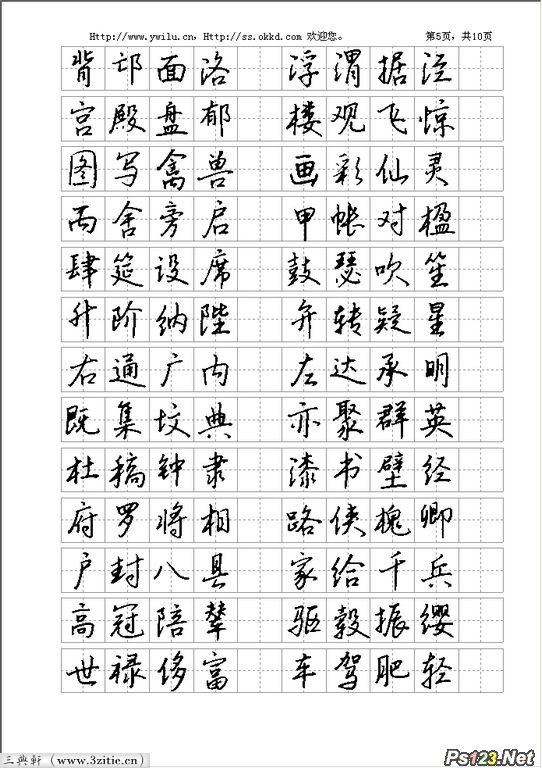 Http://www.ywilu.cn，Http://ss.okkd.com 欢迎您。 第5页，共10页
背邙面洛 浮渭据泾
宫殿盘郁 楼观飞惊
图写禽兽 画彩仙灵
丙舍旁启 甲帐对楹
肆筵设席 鼓瑟吹笙
升阶纳陛 弁转疑星
右通广内 左达承明
既集坟典 亦聚群英
杜稿钟隶 漆书壁经
府罗将相 路侠槐卿
户封八县 家给千兵
高冠陪辇 驱毂振缨
世禄侈富 车驾肥轻
三典轩（www.3zitie.cn）
Ps123.Net